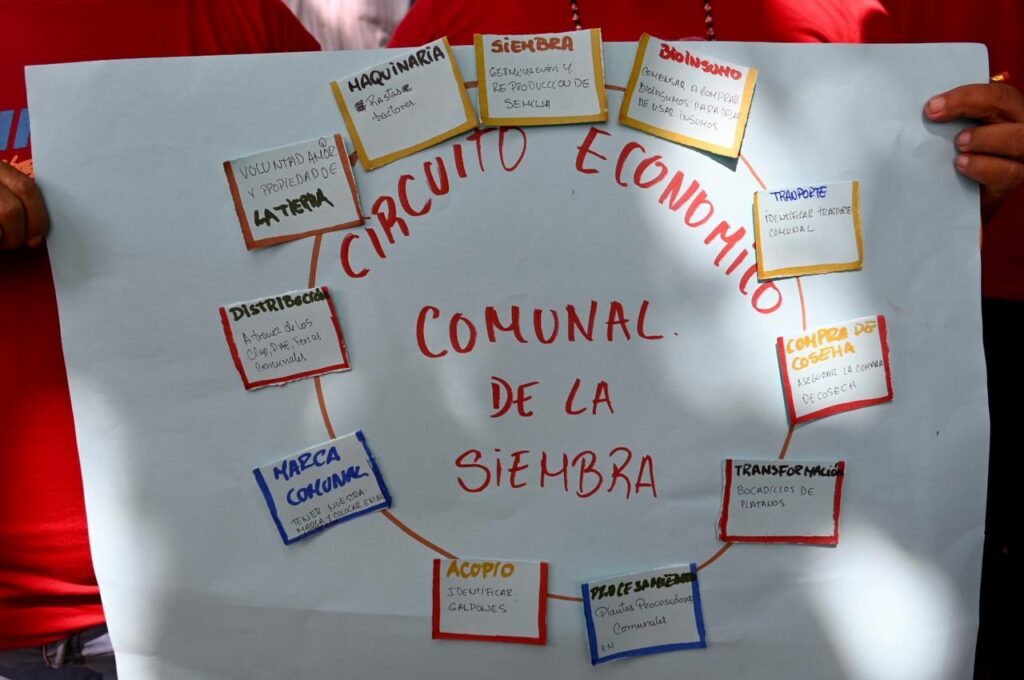 CIRCUITO ECONOMICO
COMUNAL.
DE LA
SIEMBRA
SIEMBRA
GERMINACIÓN Y
REPRODUCCIÓN DE
SEMILLA
BIOINSUMO
COMENSAR A COMPRAR
BIOINSUMOS PARA DEJAR
DE USAR INSUMOS
TRANPORTE
IDENTIFICAR TRASPORE
COMUNAL
COMPRA DE
COSEHA
ASEGURAR LA COMPRA
DE COSECHA.
TRANSFORMACIÓN
BOCADILLOS DE
PLATANOS
PROCESAMIENTO
Plantas Procesadoras
Comunales
ACOPIO
IDENTIFICAR
GALPONES
MARCA
COMUNAL
TENER NUESTRA
MARCA Y COLOCAR EN EL
DISTRIBUCIÓN
A travez de los
Clap, PAE, Ferias
Comunales
VOLUNTAD AMOR
Y PROPIEDAD DE
LA TIERRA
MAQUINARIA
Rastas
tractores